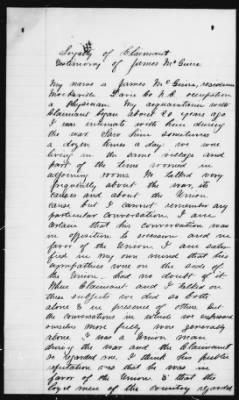 Loyalty of Claimant
Testimony of James McGuire
My name is James McGuire, residence
Mocksville Davie Co N.C. occupation
a Physician. My acquaintance with
Claimant began about 20 years ago
I was intimate with him during
the war. Saw him sometimes
a dozen times a day. we were
living in the same village and
part of the time roomed in
adjoining rooms. We talked very
frequently about the war, its
causes and about the Union
cause but I cannot remember any
particular conversation. I am
certain that his conversation was
in opposition to secession and in
favor of the Union. I am satis-
fied in my own mind that his
sympathies were on the side of
the Union. had no doubt of it.
When Claimant and I talked on
these subjects we did so both
alone & in presence of others but
the conversations in which we expressed
ourselves more fully were generally
alone. I was a Union man
during the war and the Claimant
so regarded me. I think his public
reputation was that he was in
favor of the Union & that the
loyal men of the country regarded